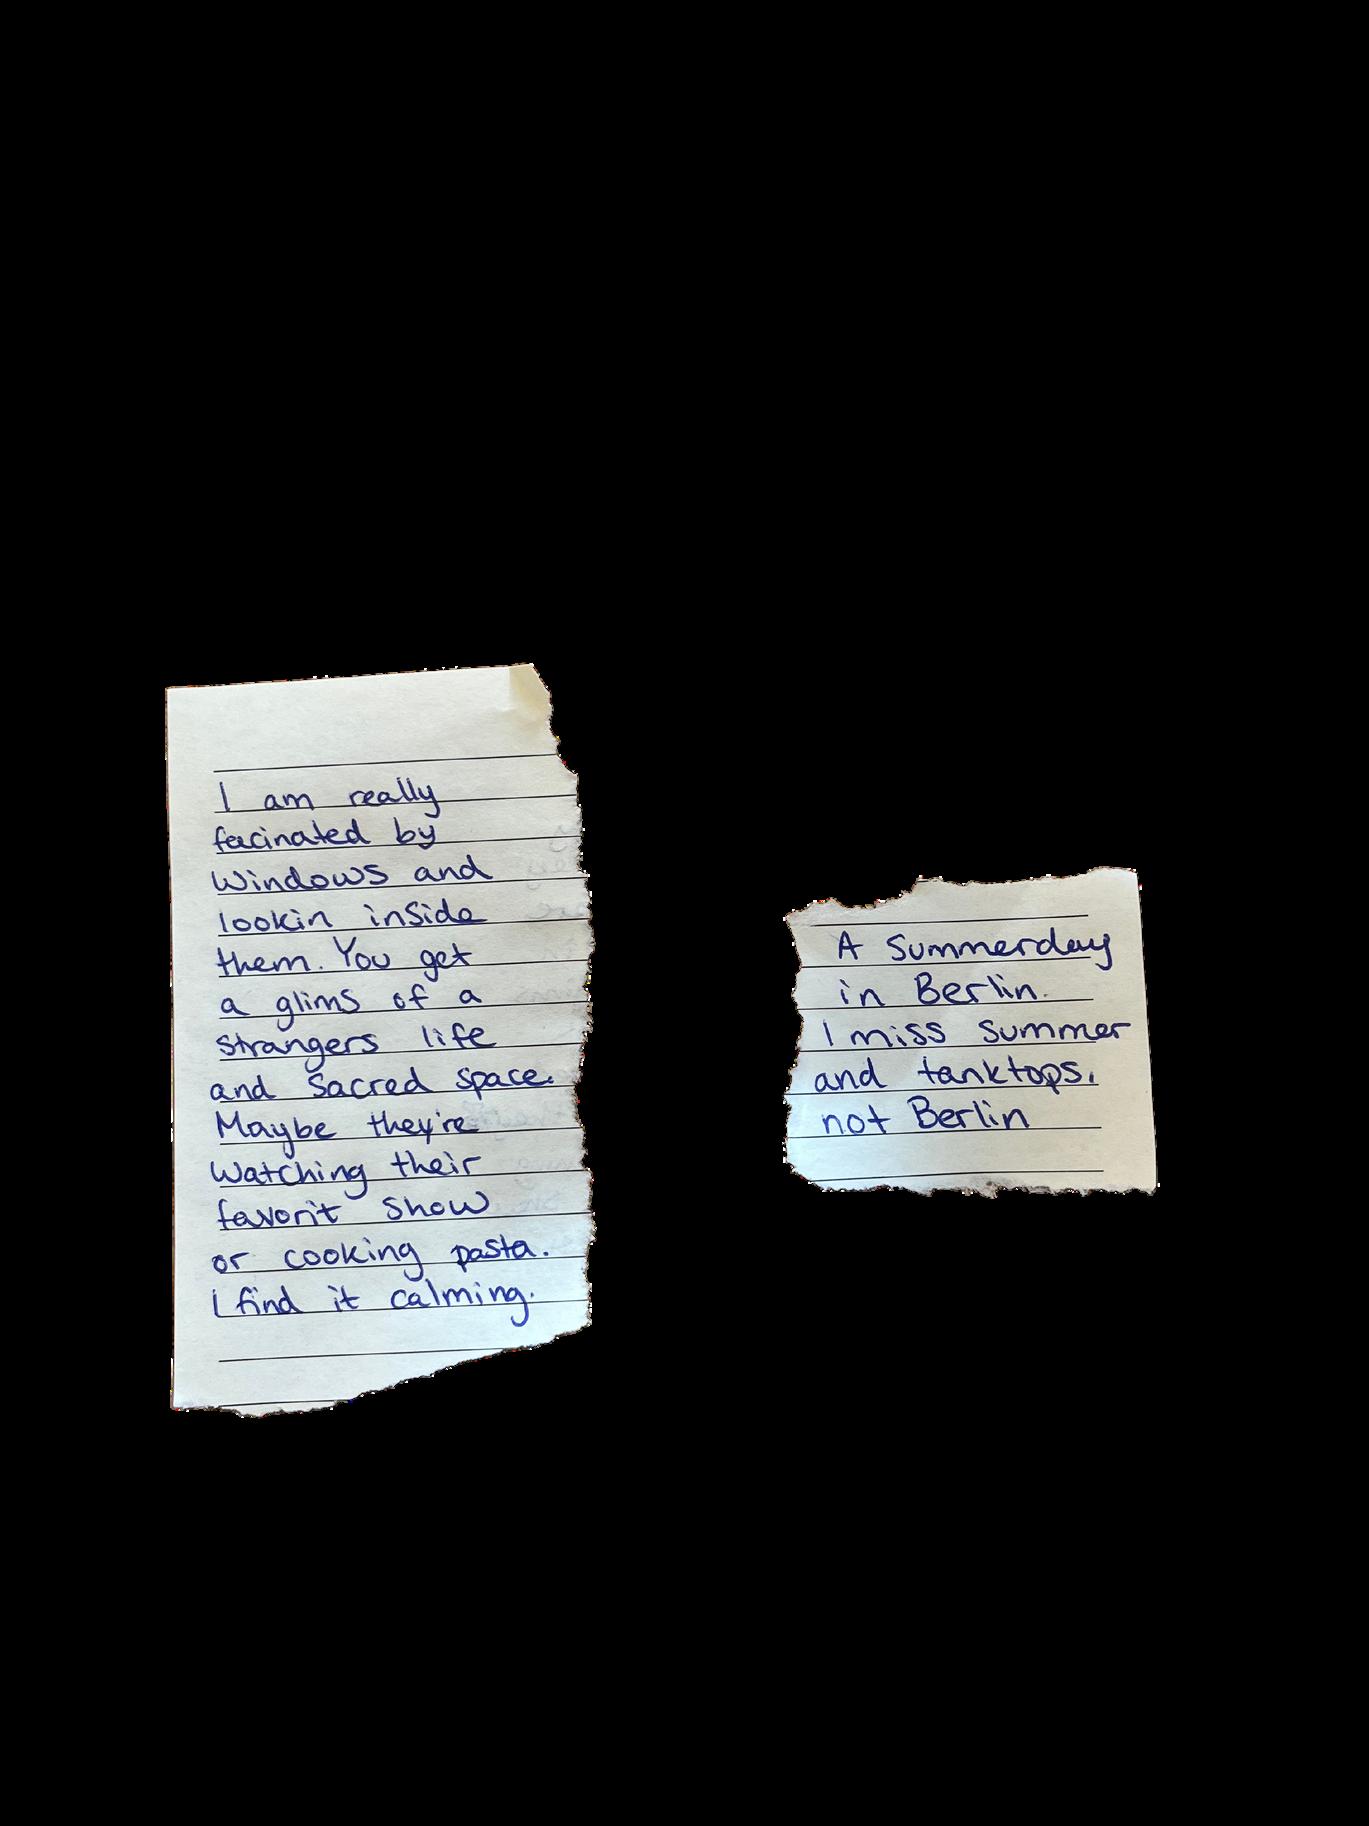 I am really
facinated by
windows and
lookin inside
them. You get
a glims of a
strangers life
and sacred space.
Maybe they're
watching their
favorit show
or cooking pasta.
I find it calming.
A Summerday
in Berlin.
I miss summer
and tanktops.
not Berlin